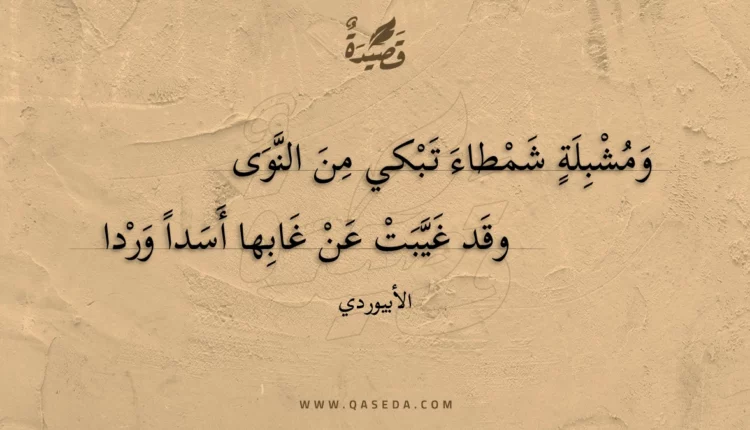 قَصِيْدَةٌ
وَمُشْبِلَةٍ شَمْطاءَ تَبْكي مِنَ النَّوَى
وقَد غَيَّبَتْ عَنْ غَابِها أَسَداً وَرْدا
الأبيوردي
WWW.QASEDA.COM